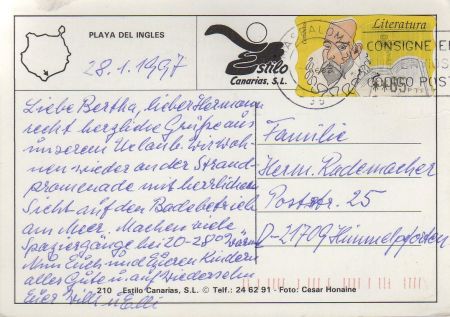 PLAYA DEL INGLES
28.1.1997
Estilo
Canarias, S.L.
Literatura
CONSIGNE E
PO POST
**65
Liebe Bertha, lieber Hermann
recht herzliche Grüße aus
unserem Urlaub. Wir woh-
nen wieder an der Strand-
promenade mit herrlichem
Sicht auf den Badebetrieb
am Meer. Machen viele
Spaziergänge bei 20-28° Wärme
Nun Euch und Eueren Kindern
alles Gute u. auf Wiedersehn
Euer Willi u. Elli
Familie
Herm. Rademacher
Poststr. 25
D-21709 Himmelpforten
210 Estilo Canarias, S.L. © Telf.: 24 62 91 - Foto: Cesar Honaine